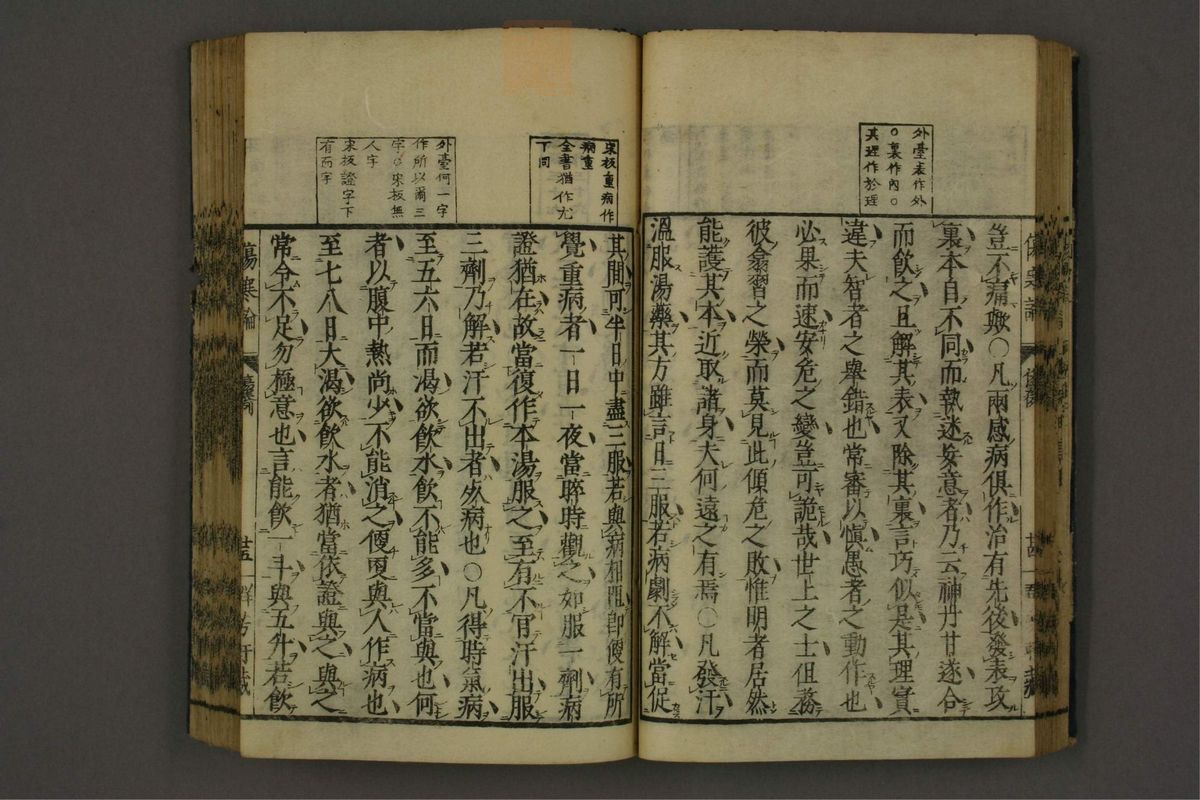 外臺表作外
○裏作內○
其理作於理
豈不痛歟○凡兩感病俱作治有先後發表攻
裏本自不同而執迷妄意者乃云神丹甘遂合
而飲之且解其表又除其裏言巧似是其理實
違夫智者之舉錯也常審以慎愚者之動作也
必果而速安危之變豈可詭哉世上之士但務
彼翕習之榮而莫見此傾危之敗惟明者居然
能護其本近取諸身夫何遠之有焉○凡發汗
溫服湯藥其方雖言日三服若病劇不解當促
宋板重病作
病重
全書猶作尤
下同
外臺何一字
作所以爾三
字○宋板無
人字
宋板證字下
有而字
其間可半日中盡三服若與病相阻即便有所
覺重病者一日一夜當晬時觀之如服一劑病
證猶在故當復作本湯服之至有不肯汗出服
三劑乃解若汗不出者死病也○凡得時氣病
至五六日而渴欲飲水飲不能多不當與也何
者以腹中熱尚少不能消之便更與人作病也
至七八日大渴欲飲水者猶當依證與之與之
常令不足勿極意也言能飲一斗與五升若飲
傷寒論
廿五